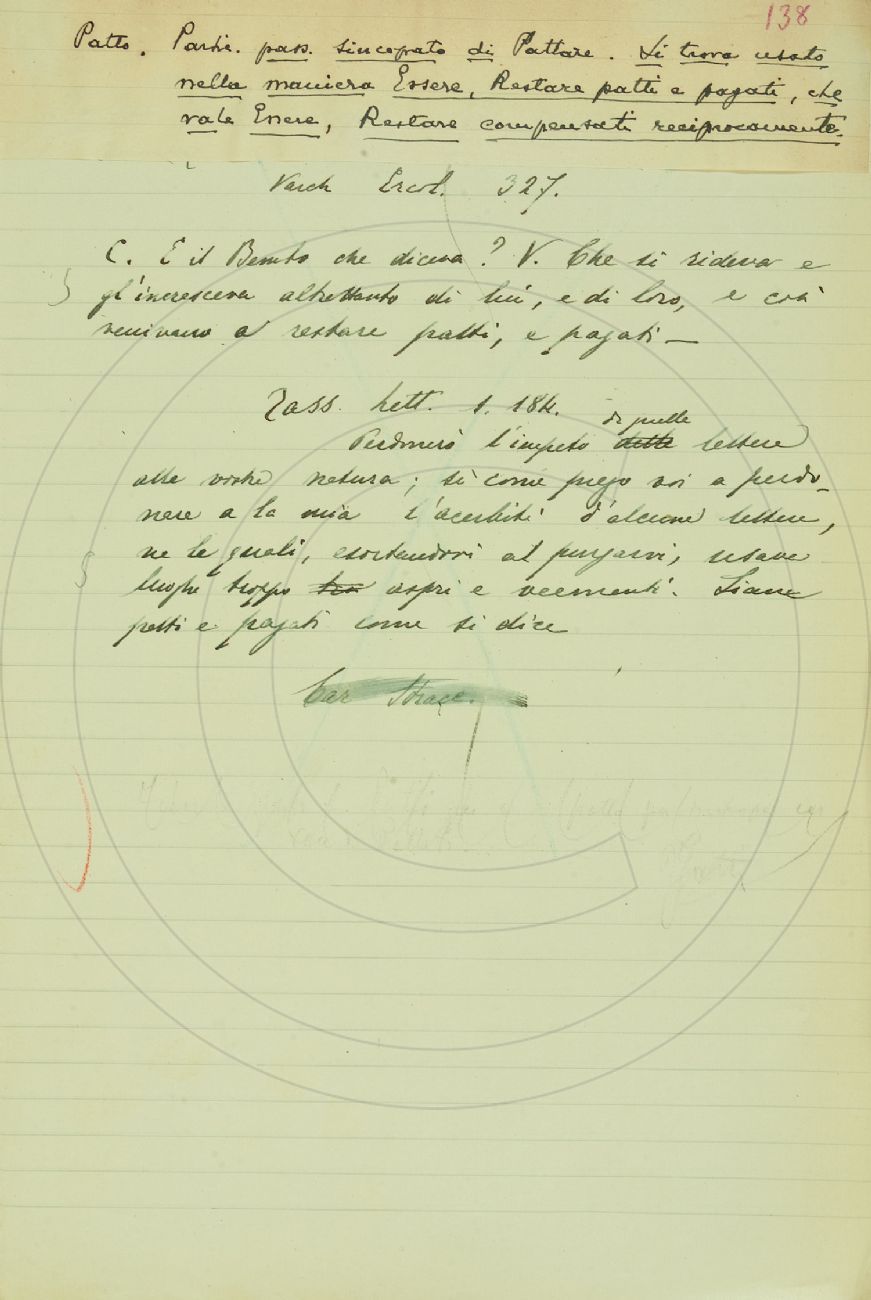 138
Patto. Partic. pass. sincopato di Pattare. Si trova usato
nella maniera Essere, Restare patti e pagati, che
vale Essere, Restare compensati reciprocamente.
Varch Ercol. 327.
C. E il Bembo che diceva? V. Che si rideva e
gl'incresceva altrettanto di lui, e di loro, e così
venivano a restare patti, e pagati —
Tass. Lett. 1. 184.
di quelle
Perdonerò l'impeto delle lettere
alla vostra natura; sì come prego voi a perdo-
nare a la mia l'acerbità d'alcune lettere,
ne le quali, esortandovi al purgarvi, usava
luoghi troppo tro aspri e veementi. Siamo
patti e pagati come si dice
Car Strace.